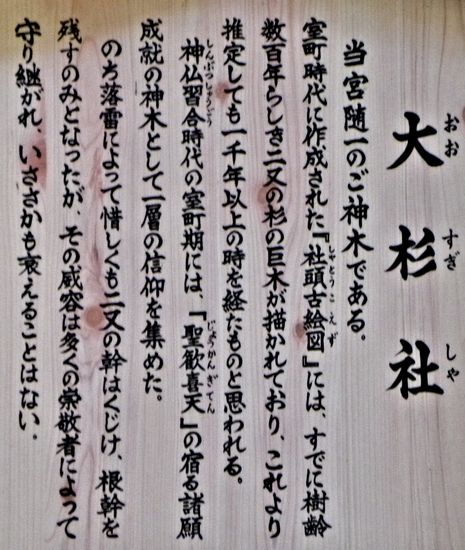 大杉社
おおすぎしゃ
当宮随一のご神木である。
室町時代に作成された『社頭古絵図』には、すでに樹齢
しゃとうこえず
数百年らしき二又の杉の巨木が描かれており、これより
推定しても一千年以上の時を経たものと思われる。
神仏習合時代の室町期には、「聖歓喜天」の宿る諸願
しんぶつしゅうごう
しょうかんぎてん
成就の神木として一層の信仰を集めた。
のち落雷によって惜しくも二又の幹はくじけ、根幹を
残すのみとなったが、その威容は多くの崇敬者によって
守り継がれ、いささかも衰えることはない。